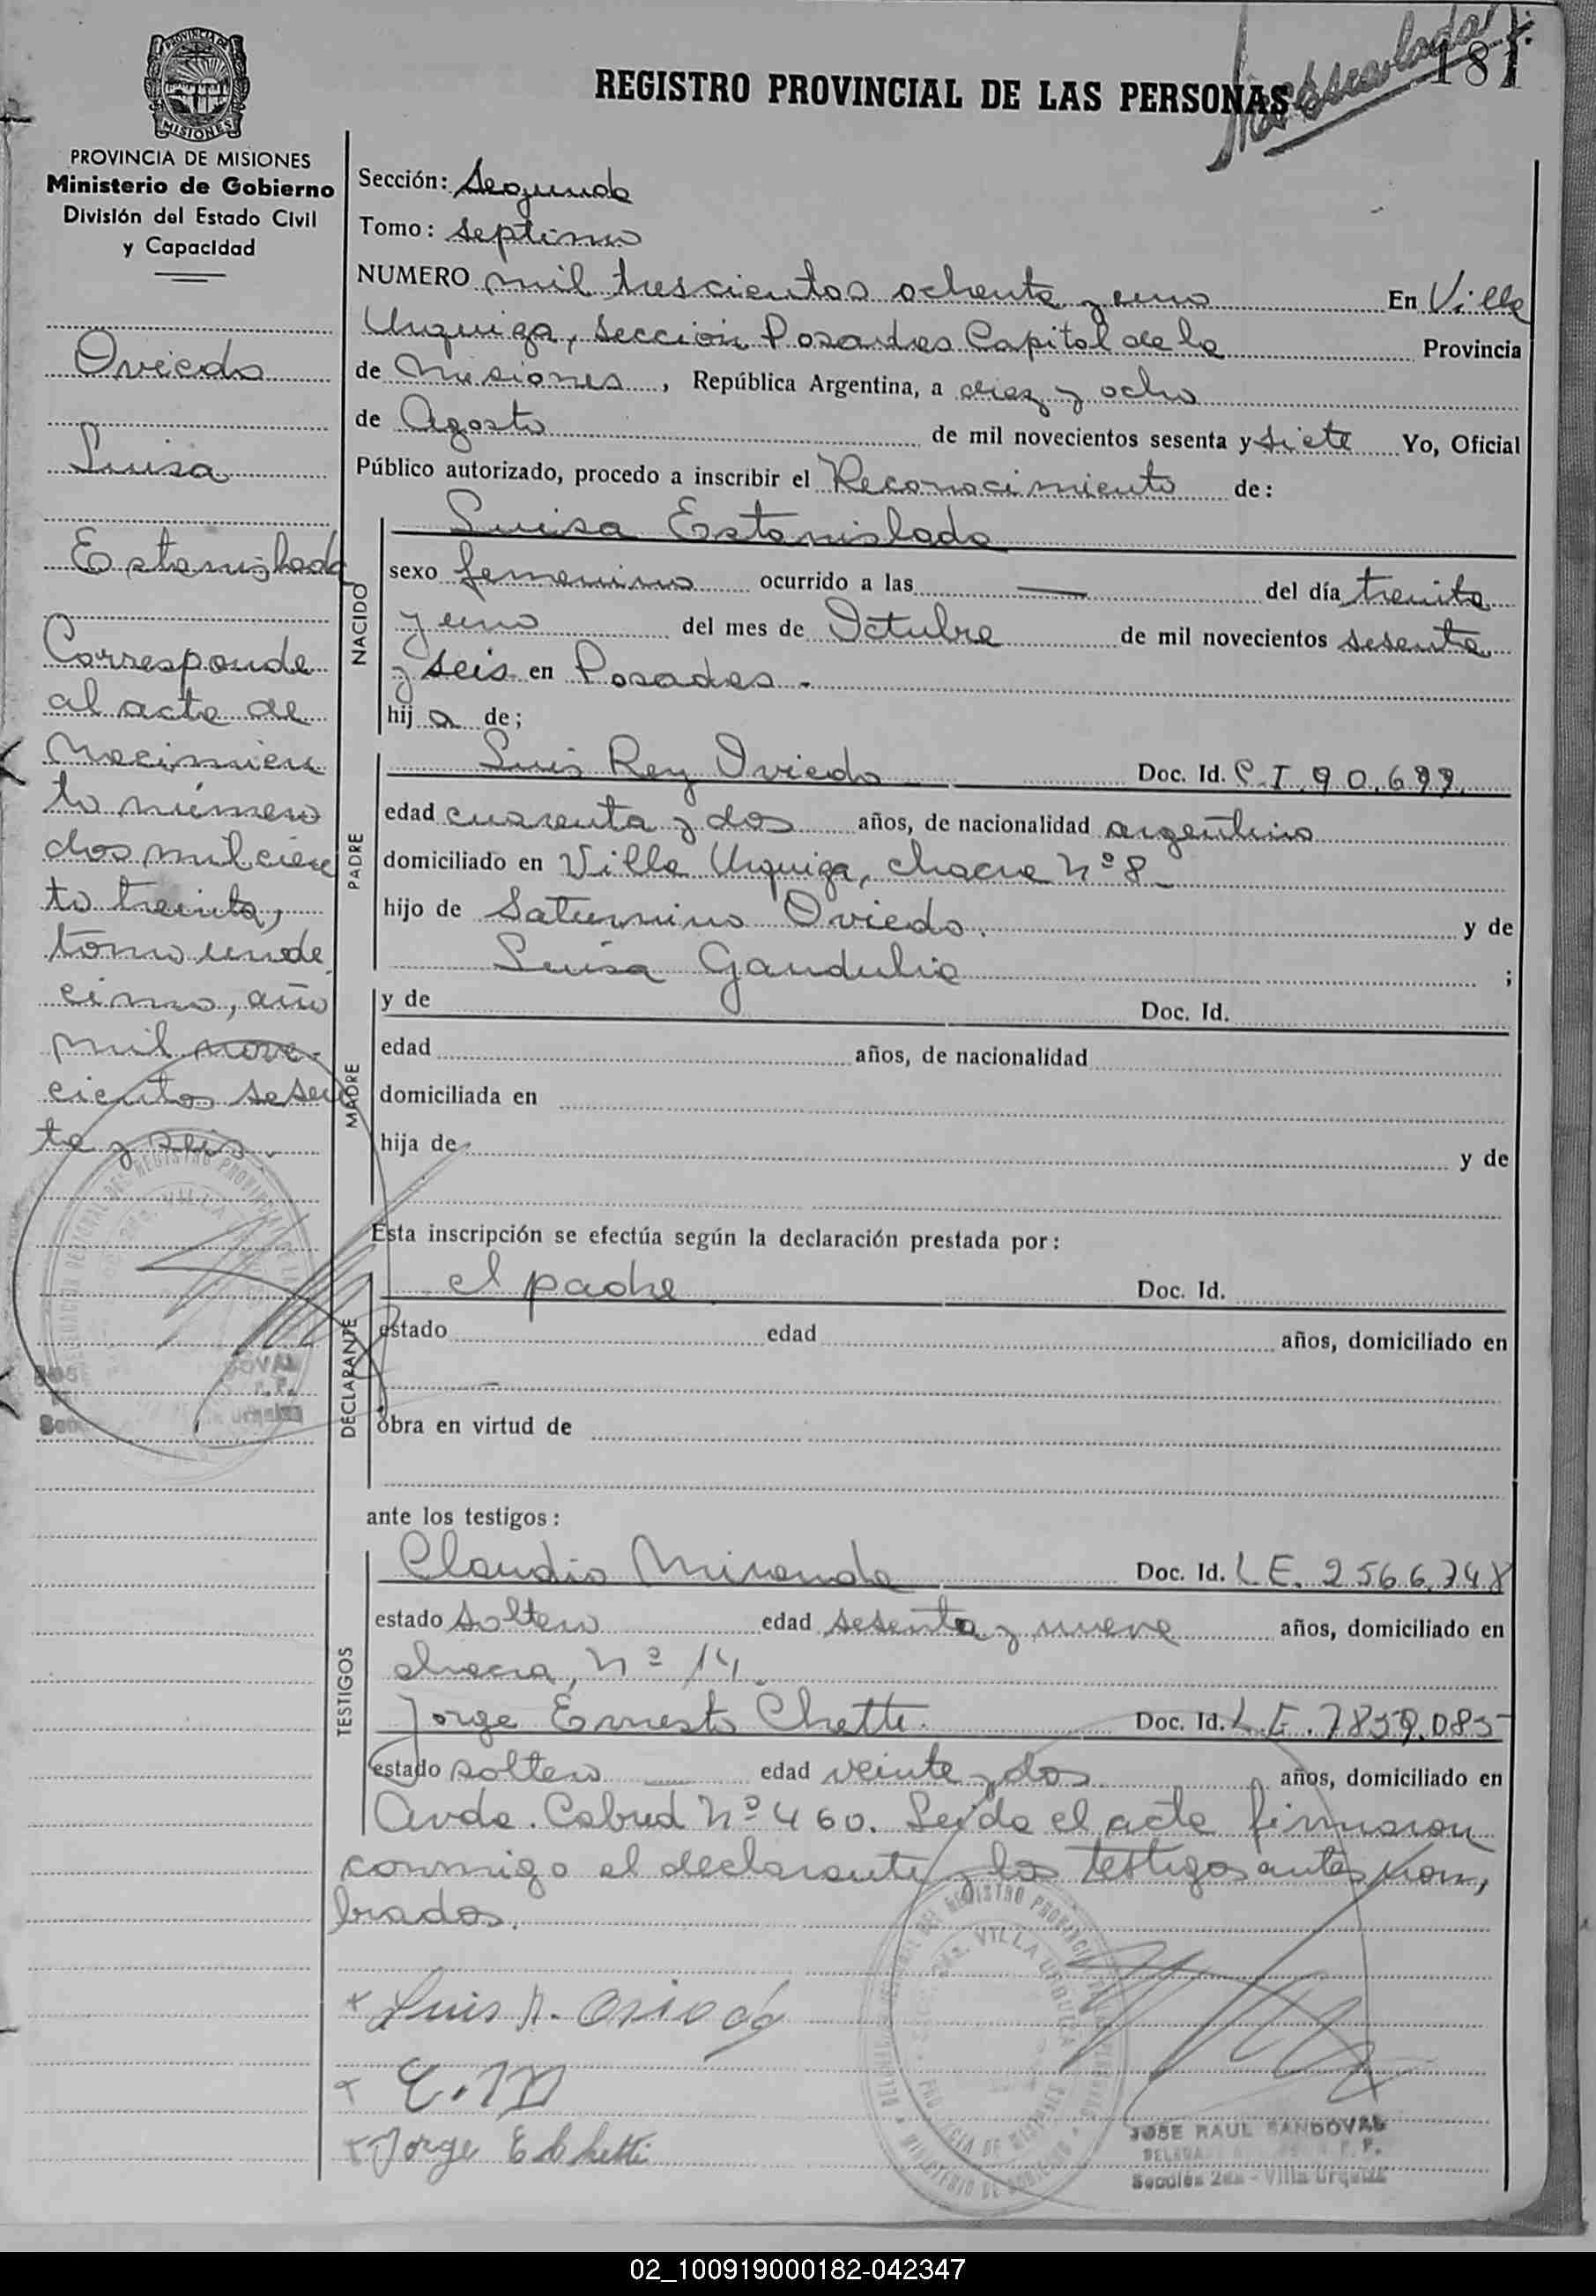 187
REGISTRO PROVINCIAL DE LAS PERSONAS
PROVINCIA DE MISIONES
Ministerio de Gobierno
División del Estado Civil
y Capacidad
Oviedo
Luisa
Estanislada
Corresponde
al acta de
Nacimien
to número
dos mil cien
to treinta,
tomo unde
cimo, año
mil nove
cientos sesen
ta y seis.
Sección: Segunda
Tomo: Septimo
NUMERO mil trescientos ochenta y uno En Villa
Urquiza, Sección Posadas Capital de la Provincia
de Misiones, República Argentina, a diez y ocho
de Agosto de mil novecientos sesenta y siete Yo, Oficial
Público autorizado, procedo a inscribir el Reconocimiento de:
NACIDO
Luisa Estanislada
sexo femenino ocurrido a las — del día treinta
y uno del mes de Octubre de mil novecientos sesenta
y seis en Posadas.
hija de;
PADRE
Luis Rey Oviedo Doc. Id. C.I. 90.699.
edad cuarenta y dos años, de nacionalidad argentino
domiciliado en Villa Urquiza, chacra Nº 8
hijo de Saturnino Oviedo. y de
Luisa Gandulia ;
MADRE
y de Doc. Id.
edad años, de nacionalidad
domiciliada en
hija de y de
Esta inscripción se efectúa según la declaración prestada por:
DECLARANTE
el padre Doc. Id.
estado edad años, domiciliado en
obra en virtud de
ante los testigos:
TESTIGOS
Claudio Miranda Doc. Id. L.E. 2.566.748
estado soltero edad sesenta y nueve años, domiciliado en
chacra, Nº 14.
Jorge Ernesto Chette. Doc. Id. L.E. 7.859.085
estado soltero edad veinte y dos años, domiciliado en
Avda. Cabred Nº 460. Leída el acta firmaron
conmigo el declarante y los testigos antes nom,
brados.
Luis R. Oviedo
C. M
Jorge E Chetti
JOSE RAUL SANDOVAL
Sección 2da - Villa Urquiza
02_100919000182-042347